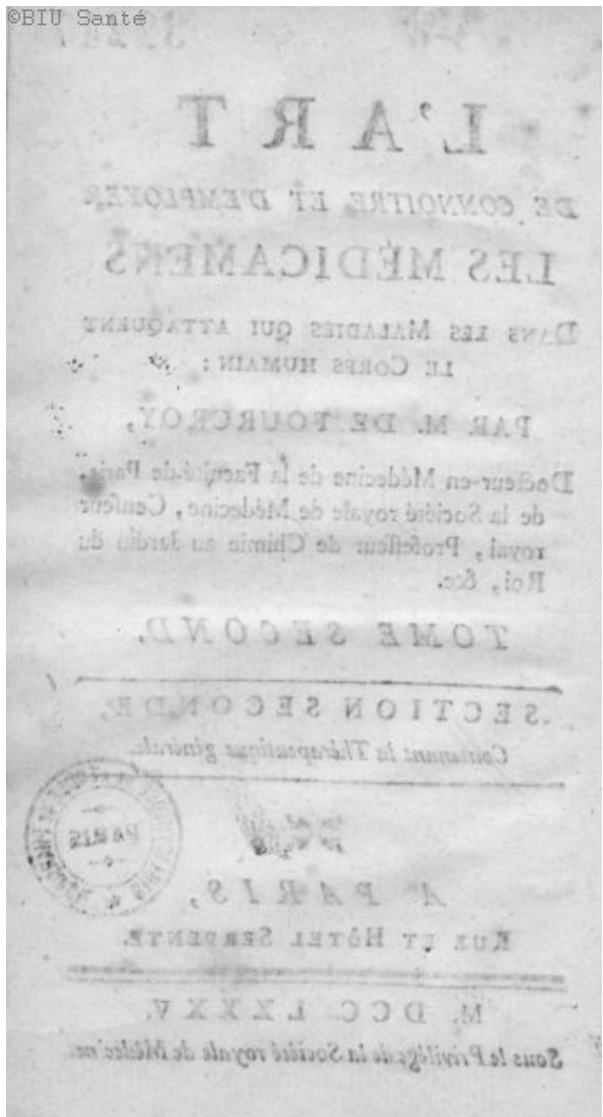 ©BIU Santé
L'ART
DE CONNOITRE ET D'EMPLOYER
LES MÉDICAMENS
DANS LES MALADIES QUI ATTAQUENT
LE CORPS HUMAIN :
PAR M. DE FOURCROY,
Docteur-en Médecine de la Faculté de Paris,
de la Société royale de Médecine, Censeur
royal, Professeur de Chimie au Jardin du
Roi, &c.
TOME SECOND.
SECTION SECONDE,
Contenant la Thérapeutique générale.
PARIS
A PARIS,
RUE ET HÔTEL SERPENTE.
M. DCC. LXXXV.
Sous le Privilége de la Société royale de Médecine.